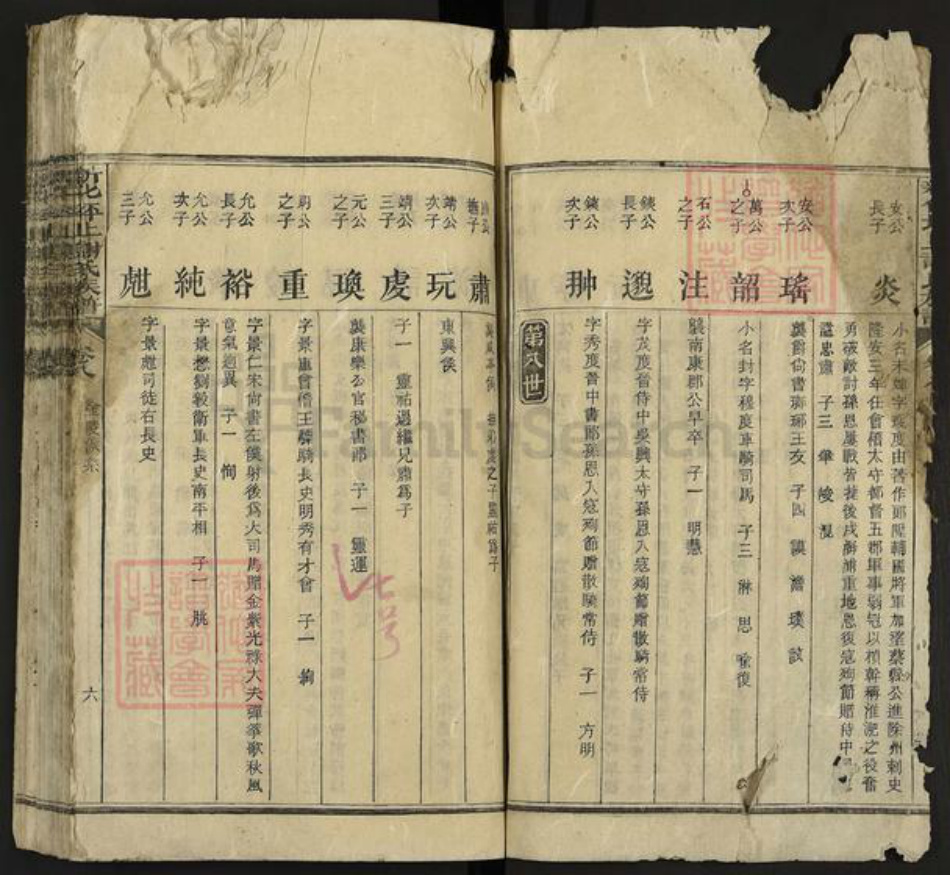 安公
長子
炎
小名末婢字瑗度由著作郎陞輔國將軍加望蔡縣公進除州刺史
隆安三年任會稽太守都督五郡軍事弱冠以楨幹稱淮淝之役奮
勇破敵討孫恩屢戰皆捷後戍海浦重地恩復寇殉節贈侍中
謚忠肅 子三 肇 峻 混
安公
次子
瑤
襲爵尙書瑯琊王友 子四 謨 澹 璞
萬公
之子
韶
小名封字穆度車騎司馬 子三 淋 思 喩復
石公
之子
注
襲南康郡公早卒 子一 明慧
鐵公
長子
邈
字茂度晋侍中吳興太守孫恩入寇殉節贈散騎常侍
鐵公
次子
翀
字秀度晋中書郞孫恩入寇殉節贈散騎常侍 子一 方明
第八世
肅
之子靈祐爲子
靖公
次子
玩
東興侯
靖公
三子
虔
子一 靈祐過繼兄肅爲子
元公
之子
瑍
襲康樂公官秘書郞 子一 靈運
朗公
之子
重
字景重會稽王驃騎長史明秀有才會 子一 絢
允公
長子
裕
字景仁宋尙書左僕射後爲大司馬贈金紫光祿大夫彈箏歌秋風
意氣逈異 子一 恂
允公
次子
純
字景懋劉毅衛軍長史南平相 子一 朓
允公
三子
甝
字景魋司徒右長史
謝氏族譜
卷八
六
FamilySearch